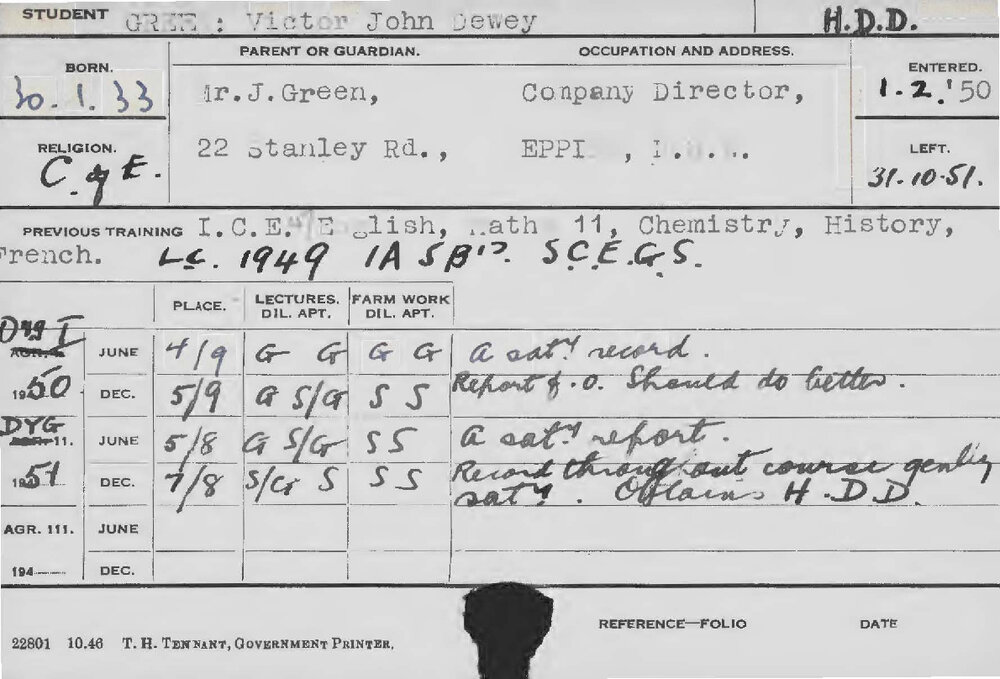 STUDENT GREE : Victor John Dewey H.D.D.
PARENT OR GUARDIAN. OCCUPATION AND ADDRESS.
BORN. ENTERED.
30.1.33 Mr.J.Green, Company Director, 1.2.'50
RELIGION. 22 Stanley Rd., EPPI , LEFT.
C. of E. 31.10.51.
PREVIOUS TRAINING I.C.E. English, Maths 11, Chemistry, History,
French. L.C. 1949 1A 5B'. S.C.E.G.S.
PLACE. LECTURES. FARM WORK
DIL. APT. DIL. APT.
JUNE 4/9 G G G G A saty. record.
1950 DEC. 5/9 G S/G S S Report f.o. Should do better.
DYG 11. JUNE 5/8 G S/G S S A saty. report.
1951 DEC. 7/8 S/G S S S Record throughout course genlly
saty. Obtains H.D.D.
AGR. 111. JUNE
194 DEC.
REFERENCE—FOLIO DATE
22801 10.46 T. H. TENNANT, GOVERNMENT PRINTER.